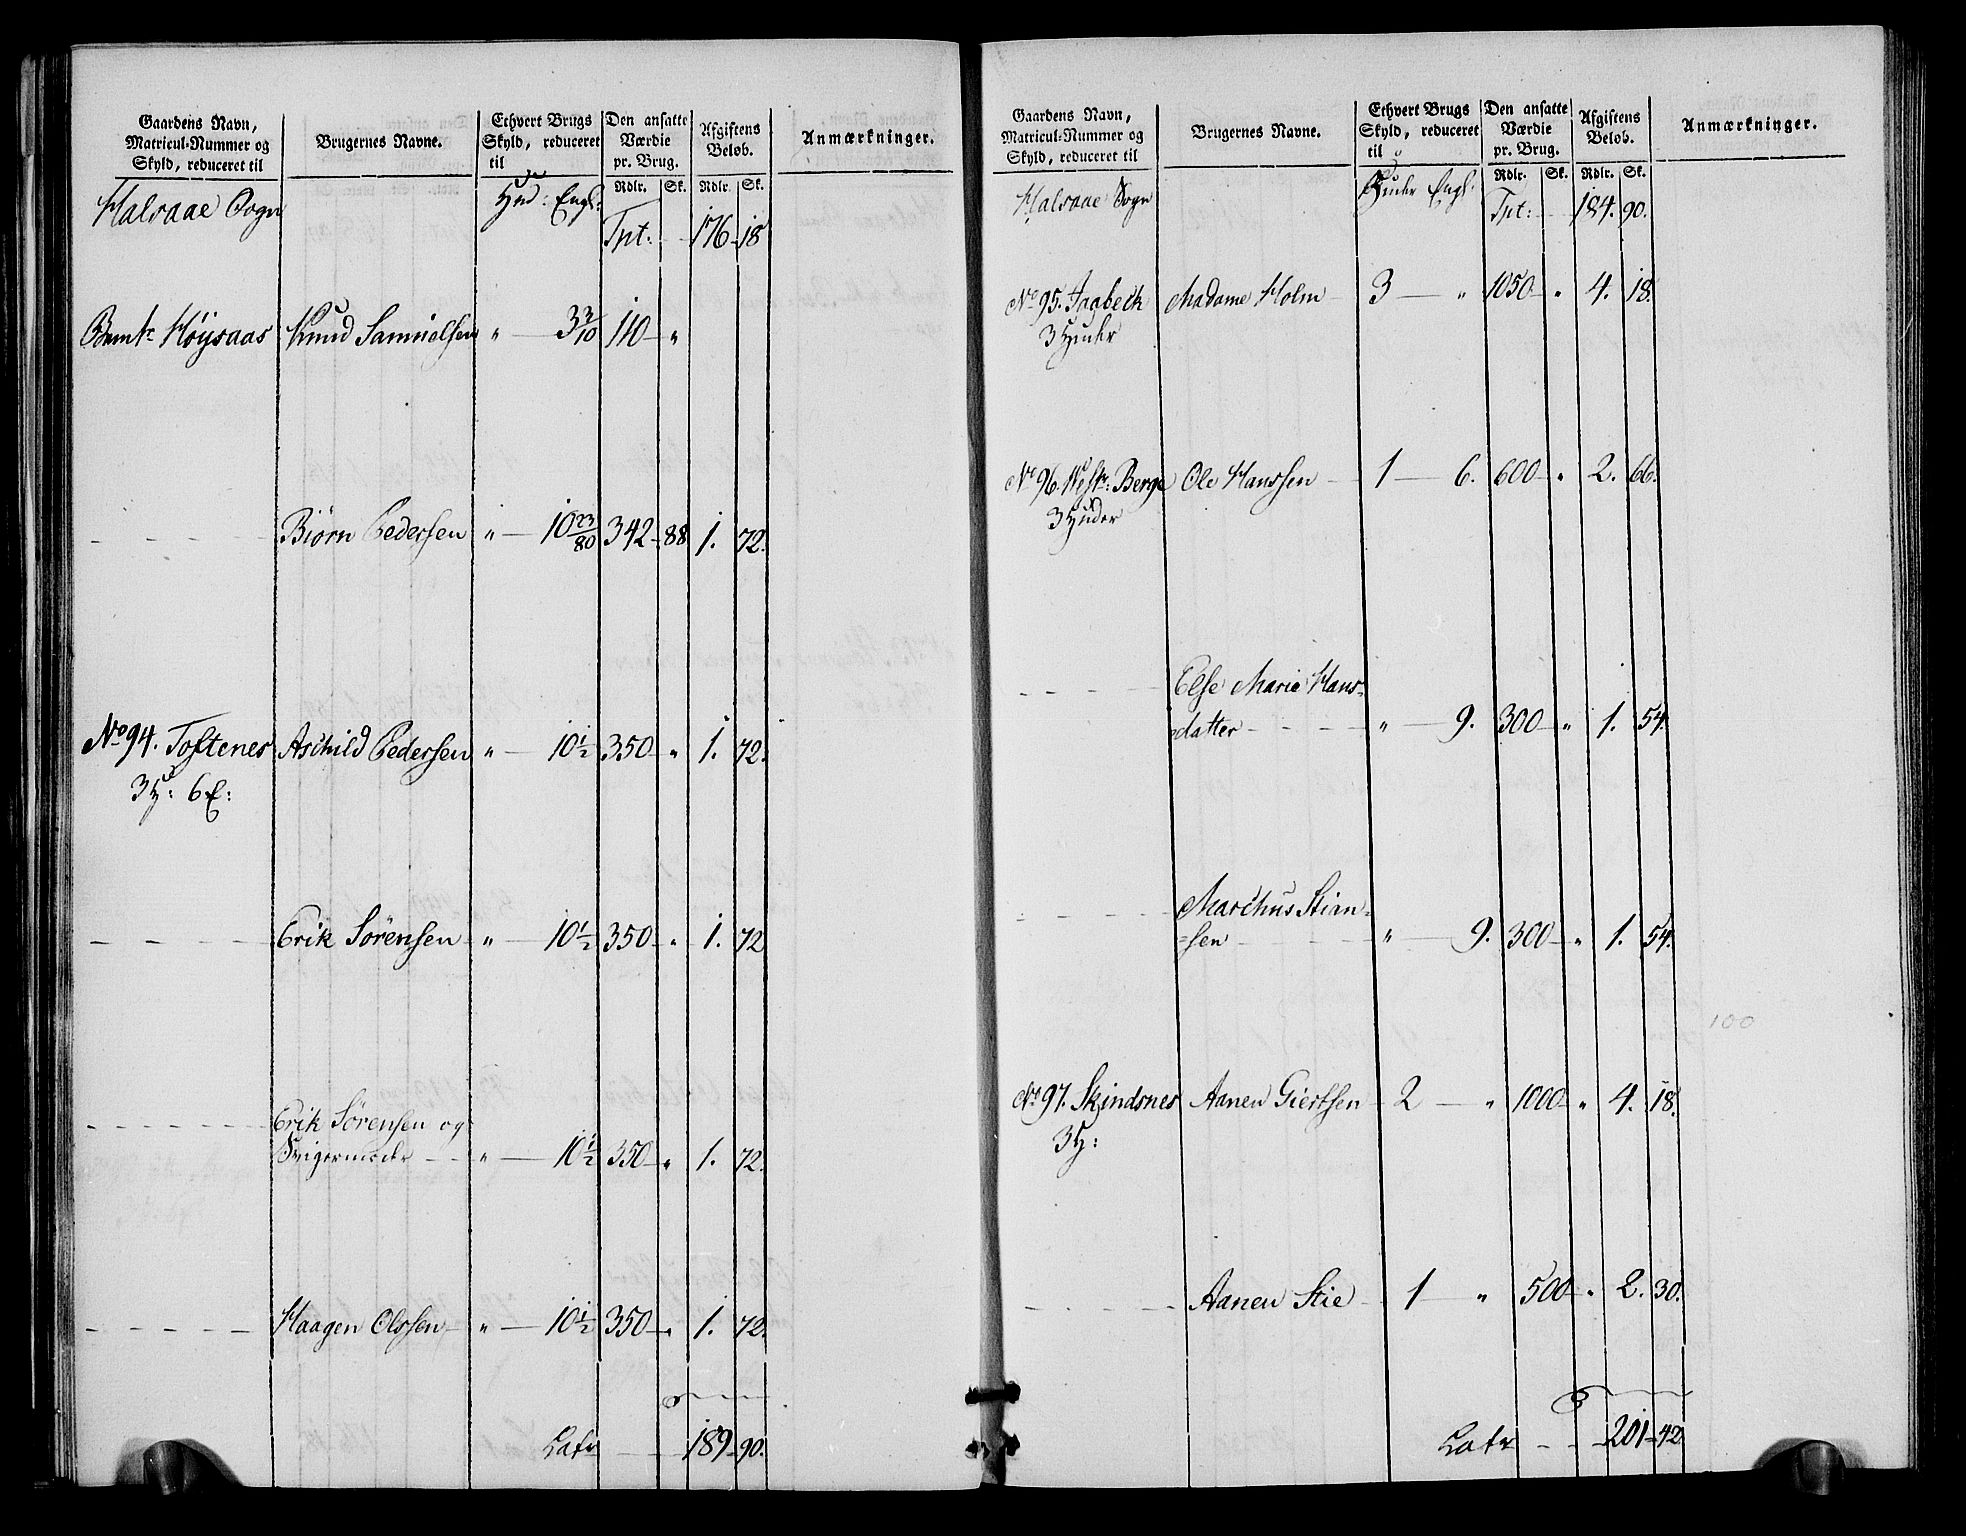 Gaardens Navn,
Matricul-Nummer og
Skyld, reduceret til
Brugernes Navne.
Ethvert Brugs
Skyld, reduceret
til
Den ansatte
Værdie
pr. Brug.
Afgiftens
Beløb.
Anmærkninger.
Rdlr. Sk. Rdlr. Sk.
Halsaae Sogn Hud: Engl:
Tpt: 176 18
Bemte Höysaas Knud Samuelsen " 3 3/10 110 "
Biörn Pedersen " 10 23/80 342 88 1. 72.
No 94. Toftenes Aschild Pedersen " 10 1/2 350 " 1. 72.
3 H: 6 E:
Erik Sörensen " 10 1/2 350 " 1. 72
Erik Sörensen og
Svigermoder " 10 1/2 350 " 1. 72.
Haagen Olssen " 10 1/2 350 " 1. 72.
Latr 189 90.
Gaardens Navn,
Matricul-Nummer og
Skyld, reduceret til
Brugernes Navne.
Ethvert Brugs
Skyld, reduceret
til
Den ansatte
Værdie
pr. Brug.
Afgiftens
Beløb.
Anmærkninger.
Rdlr. Sk. Rdlr. Sk.
Halsaae Sogn Huder Engl:
Tpt: 184. 90.
No 95. Jaabeck Madame Holm 3 " 1050 " 4. 18.
3 Huder
No 96. Westr: Berge Ole Hanssen 1 6. 600 " 2. 66.
3 Huder
Else Marie Hans-
datter " 9. 300 " 1. 54.
Marchus Stian=
=sen " 9. 300 " 1. 54.
100
No 97. Skjndsnes Aanen Giertsen 2 " 1000 " 4. 18.
3 H:
Aanen Stie 1 " 500 " 2. 30.
Latr 201 42